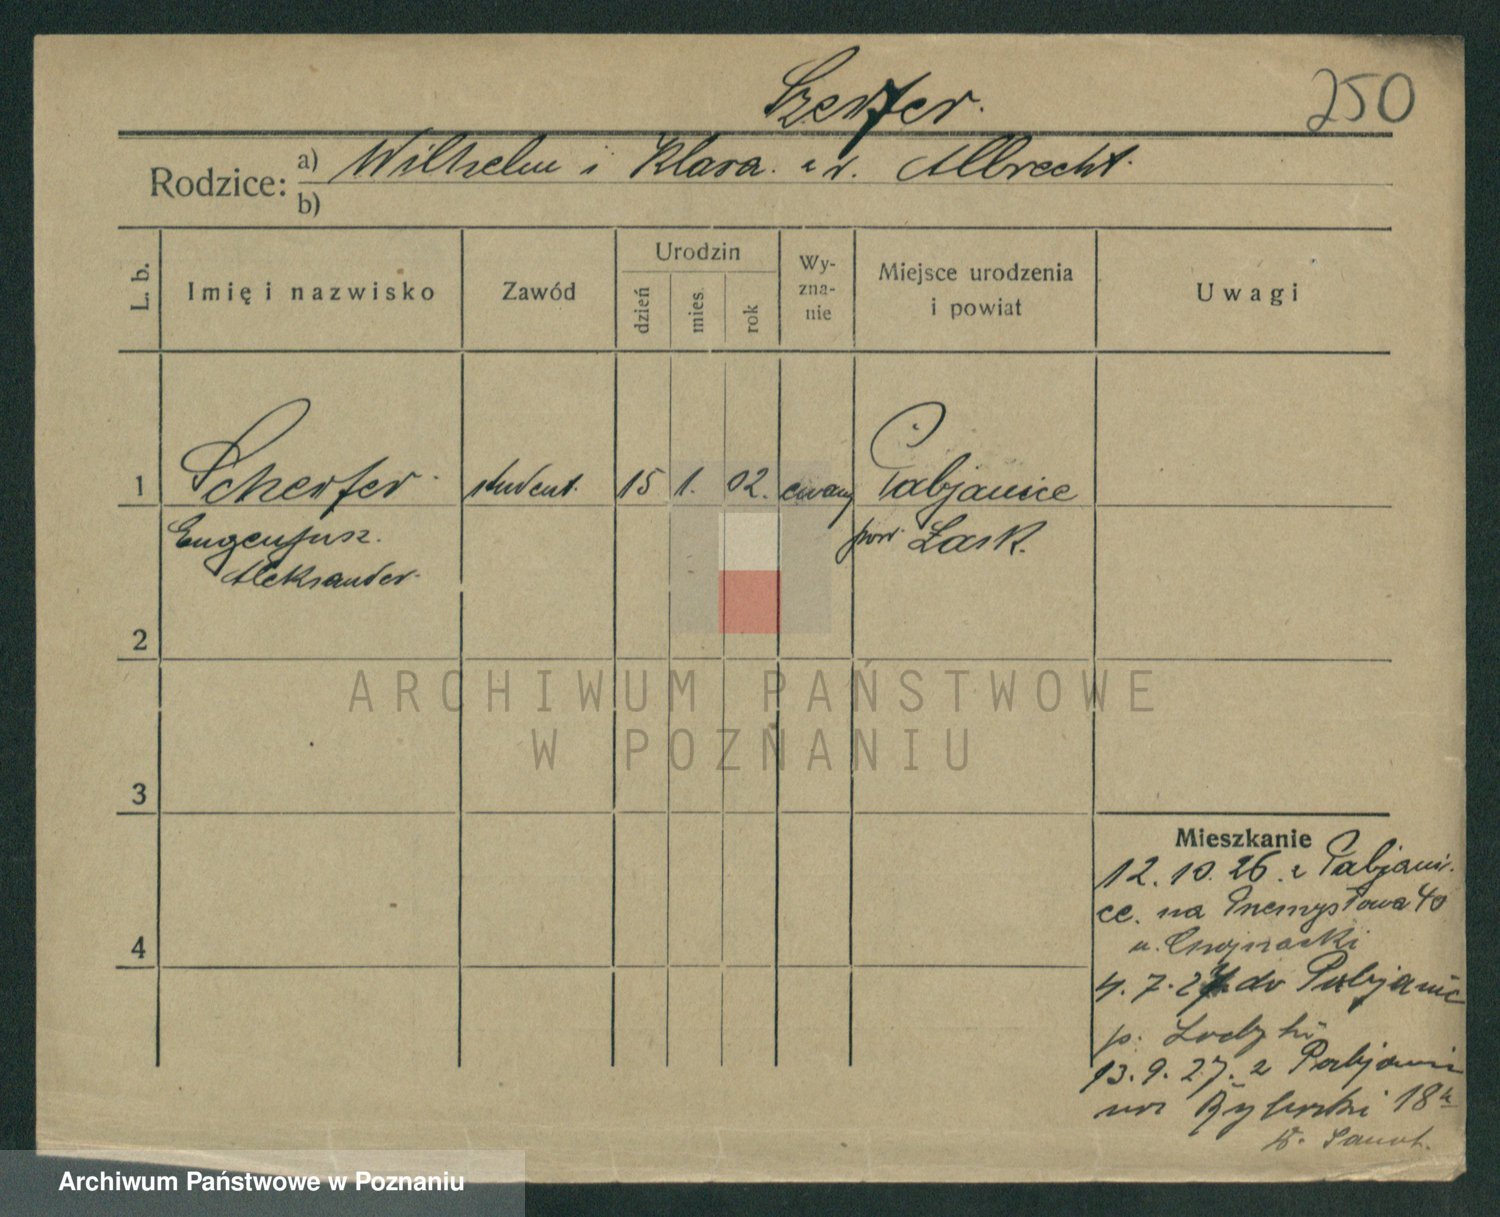 Szerfer.
250
Rodzice: a) Wilhelm i Klara z d. Albrecht.
b)
L. b.
Imię i nazwisko
Zawód
Urodzin
dzień
mies.
rok
Wy-
zna-
nie
Miejsce urodzenia
i powiat
Uwagi
1 Scherfer student. 15 1. 02. ewang Pabjanice
Eugenjusz. pow. Łask.
Aleksander.
2
3
4
Mieszkanie
12.10.26. z Pabjani-
ce. na Przemysłowa 40
u.
4.7.27. do Pabjanic
p. Łodzki
13.9.27. z Pabjanic
na Rybaki 18
ARCHIWUM PAŃSTWOWE
W POZNANIU
Archiwum Państwowe w Poznaniu